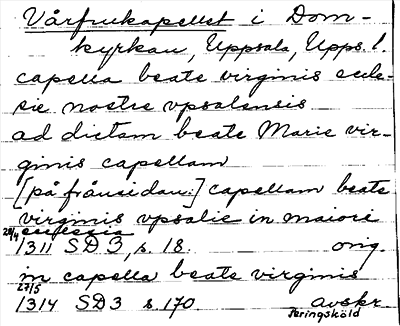 Vårfrukapellet i Dom-
kyrkan, Uppsala, Upps. l.
capella beate virginis eccle-
sie nostre vpsalensis
ad dictam beate Marie vir-
ginis capellam
[på frånsidan:] capellam beate
virginis vpsalie in maiori
ecclesia
28/4 1311 SD 3, s. 18. orig.
in capella beate virginis
27/5 1314 SD 3 s. 170. avskr.
Peringsköld